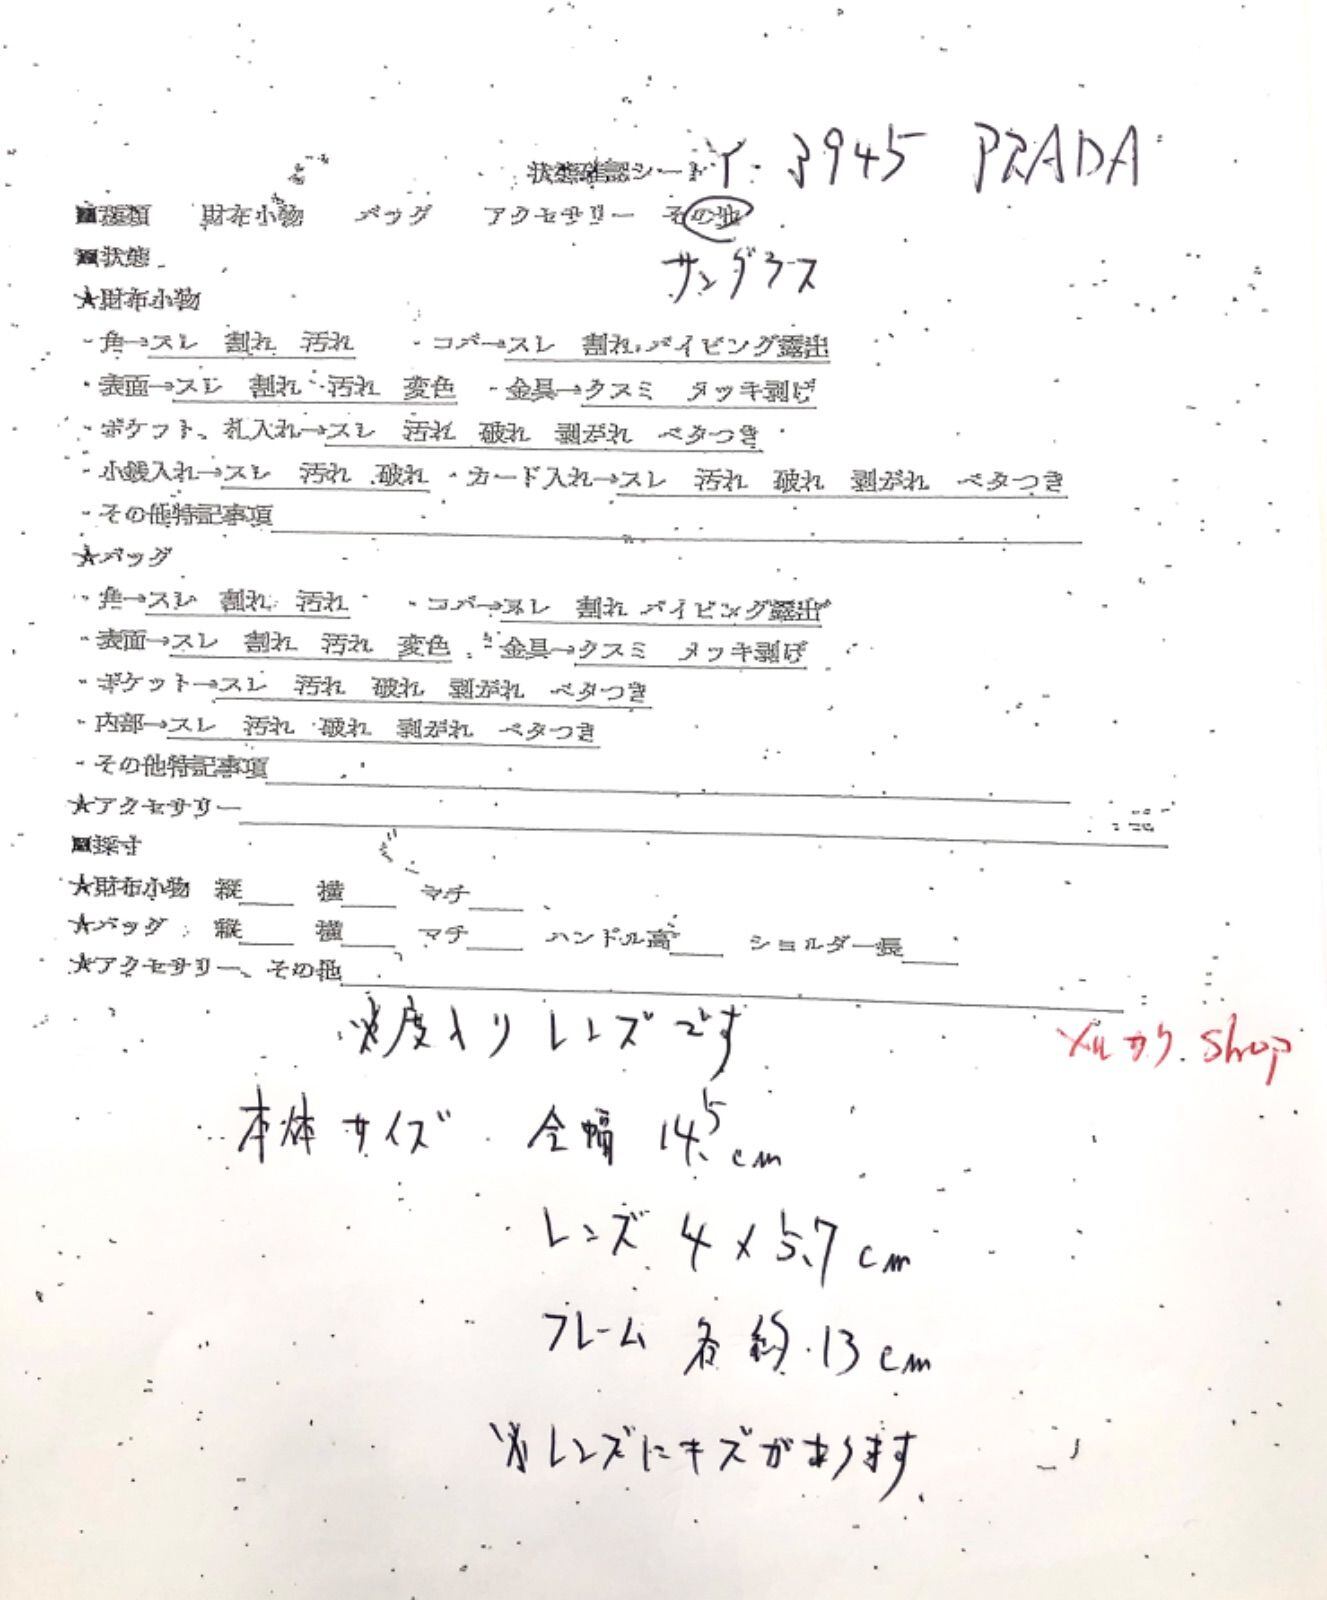 状態確認シート Y-3945 PRADA
■種類 財布小物 バッグ アクセサリー その他
■状態 サングラス
★財布小物
・角→スレ 割れ 汚れ ・コバ→スレ 割れ パイピング露出
・表面→スレ 割れ 汚れ 変色 ・金具→クスミ メッキ剥げ
・ポケット、札入れ→スレ 汚れ 破れ 剥がれ ベタつき
・小銭入れ→スレ 汚れ 破れ ・カード入れ→スレ 汚れ 破れ 剥がれ ベタつき
・その他特記事項
★バッグ
・角→スレ 割れ 汚れ ・コバ→スレ 割れ パイピング露出
・表面→スレ 割れ 汚れ 変色 ・金具→クスミ メッキ剥げ
・ポケット→スレ 汚れ 破れ 剥がれ ベタつき
・内部→スレ 汚れ 破れ 剥がれ ベタつき
・その他特記事項
★アクセサリー
■採寸
★財布小物 縦 横 マチ
★バッグ 縦 横 マチ ハンドル高 ショルダー長
★アクセサリー、その他
※度入りレンズです
メルカリ shop
本体サイズ 全幅 14.5cm
レンズ 4×5.7cm
フレーム 各約13cm
※レンズにキズがあります